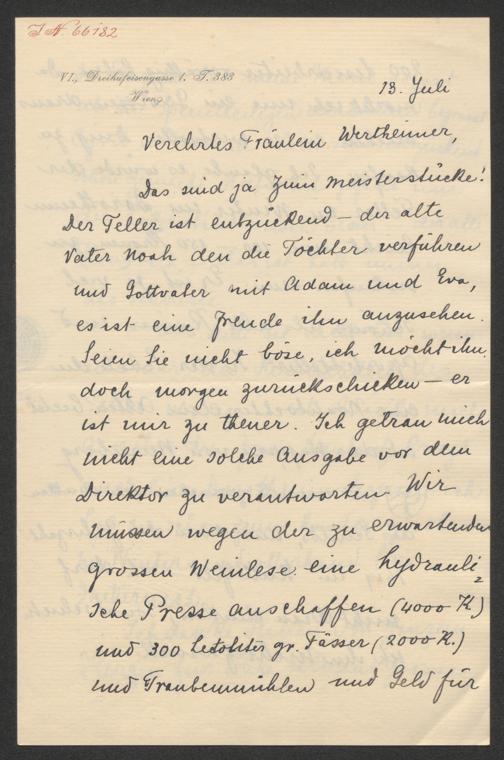 I N 66182
VI., Dreihufeisengasse 1. T. 383
Wien,
13. Juli
Verehrtes Fräulein Wertheimer,
Das sind ja zum meisterstücke!
Der Teller ist entzückend – der alte
Vater Noah den die Töchter verführen
und Gottvater mit Adam und Eva,
es ist eine Freude ihn anzusehen.
Seien Sie nicht böse, ich möcht ihn
doch morgen zurückschicken – er
ist mir zu theuer. Ich getrau mich
nicht eine solche Ausgabe vor dem
Direktor zu verantworten. Wir
müssen wegen der zu erwartenden
grossen Weinlese eine hydrauli=
sche Presse anschaffen (4000 K.)
und 300 hectoliter gr. Fässer (2000 K.)
und Traubenmühlen und Geld für